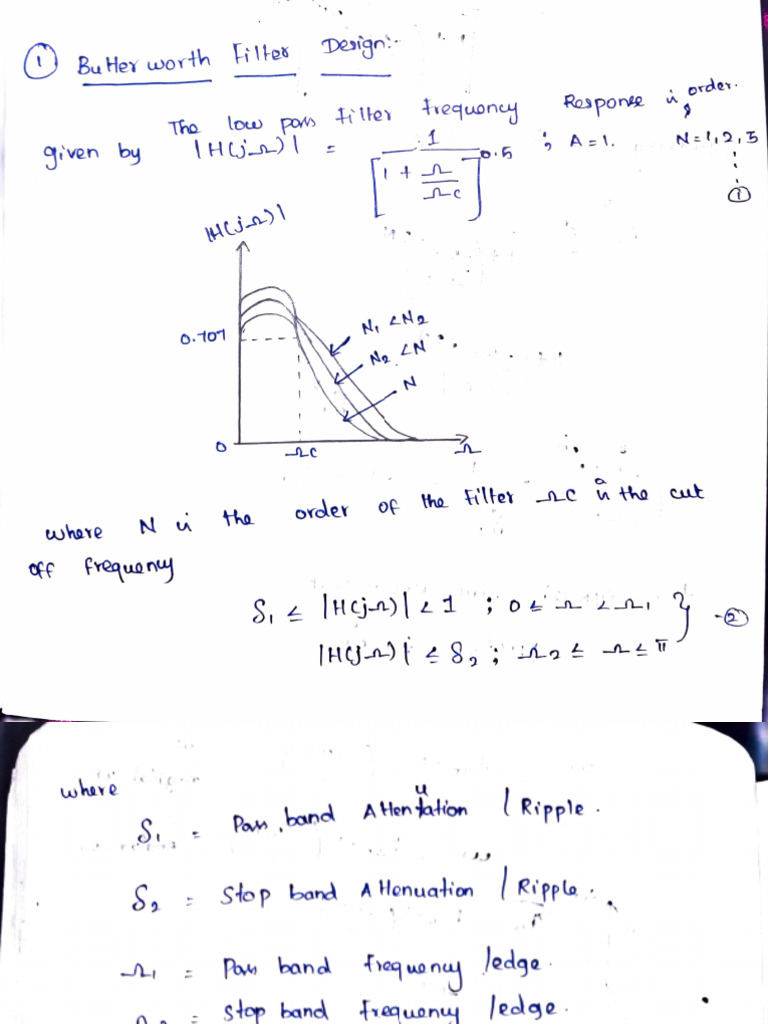 ① Butterworth Filter Design:-
The low pass filter frequency Response is order.
given by |H(jΩ)| = 1 / [1 + Ω/Ωc]^0.5 ; A=1. N=1,2,3
①
|H(jΩ)|
0.707
N1 < N2
N2 < N
N
0 Ωc Ω
where N is the order of the filter Ωc is the cut
off frequency
δ1 ≤ |H(jΩ)| < 1 ; 0 ≤ Ω < Ω1
} -②
|H(jΩ)| ≤ δ2 ; Ω2 ≤ Ω ≤ π
where
δ1 = Pass band Attenuation / Ripple.
δ2 = Stop band Attenuation / Ripple.
Ω1 = Pass band frequency /edge.
= Stop band frequency /edge.